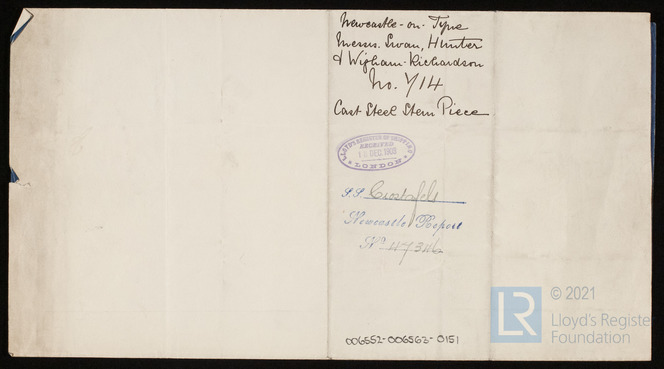 Newcastle-on-Tyne
Messrs. Swan, Hunter
& Wigham-Richardson
No. 714
Cast Steel Stem Piece
LLOYD'S REGISTER OF SHIPPING
RECEIVED
DEC 1903
LONDON
S.S.
Newcastle Report
No 47346
© 2021
LR
Lloyd's Register
Foundation
006552-006563-0151